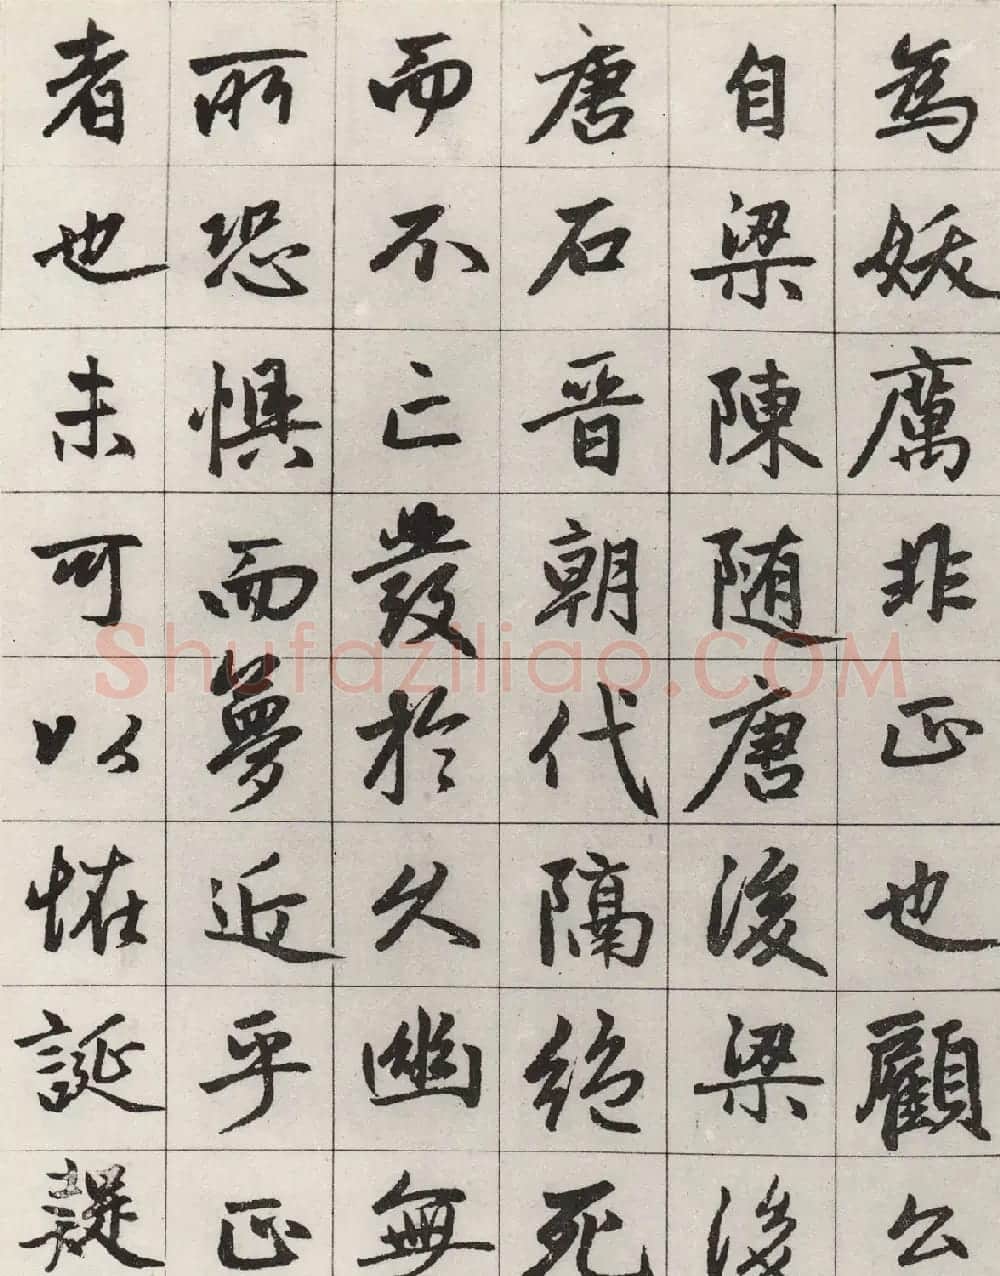 為妖厲非正也顧公
自梁陳随唐後梁後
唐石晋朝代隔絶死
而不亡發於久幽無
所恐懼而夢近乎正
者也未可以恠誕
Shufaziliao.COM